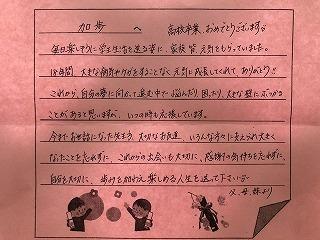 加歩へ 高校卒業、おめでとうございます!!
毎日楽しそうに学生生活を送る姿に、家族皆、元気をもらっていました。
18年間、大きな病気やケガをすることなく、元気に成長してくれて ありがとう!!
これから、自分の夢に向かって進む中で悩んだり、困ったり、大きな壁にぶつかる
ことがあると思いますが、いつの時も応援しています。
今までお世話になった先生方、大切なお友達、いろんな方々に支えられ大きく
なったことを忘れずに、これからの出会いも大切に、感謝の気持ちを忘れずに、
自分を大切に、歩みを加え楽しめる人生を送って下さいね
父、母、妹より